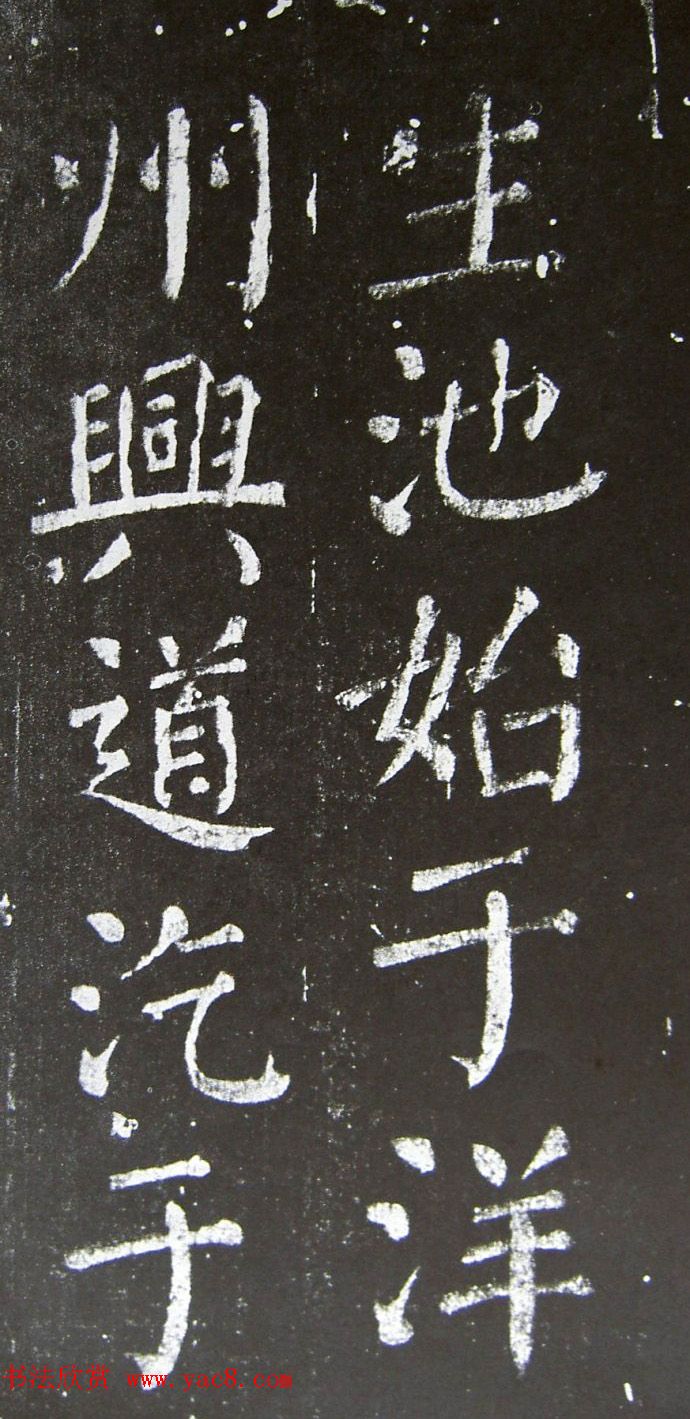 生池始于洋
州興道汔于
书法欣赏 www.yac8.com